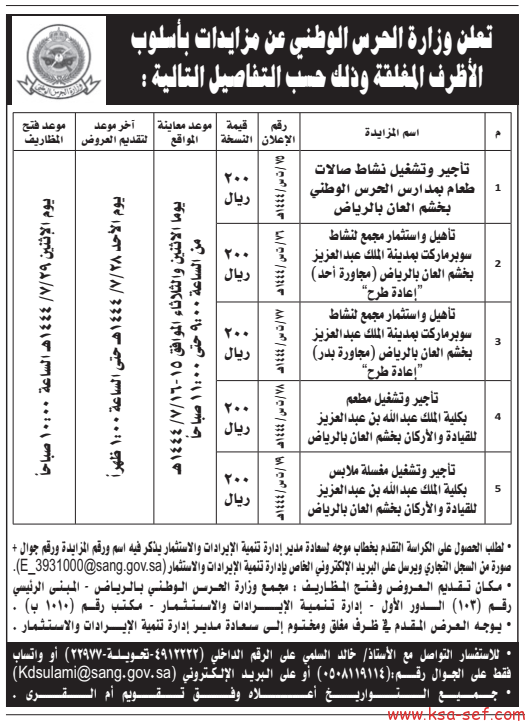 تعلن وزارة الحرس الوطني عن مزايدات بأسلوب
الأظرف المغلقة وذلك حسب التفاصيل التالية :
وزارة الحرس الوطني
م
اسم المزايدة
رقم الإعلان
قيمة النسخة
موعد معاينة المواقع
آخر موعد لتقديم العروض
موعد فتح المظاريف
1
تأجير وتشغيل نشاط صالات
طعام بمدارس الحرس الوطني
بخشم العان بالرياض
٧٥/ت س/١٤٤٤هـ
٢٠٠ ريال
2
تأهيل واستثمار مجمع لنشاط
سوبرماركت بمدينة الملك عبدالعزيز
بخشم العان بالرياض (مجاورة أحد)
"إعادة طرح"
٧٦/ت س/١٤٤٤هـ
٢٠٠ ريال
3
تأهيل واستثمار مجمع لنشاط
سوبرماركت بمدينة الملك عبدالعزيز
بخشم العان بالرياض (مجاورة بدر)
"إعادة طرح"
٧٧/ت س/١٤٤٤هـ
٢٠٠ ريال
4
تأجير وتشغيل مطعم
بكلية الملك عبدالله بن عبدالعزيز
للقيادة والأركان بخشم العان بالرياض
٧٨/ت س/١٤٤٤هـ
٢٠٠ ريال
5
تأجير وتشغيل مغسلة ملابس
بكلية الملك عبدالله بن عبدالعزيز
للقيادة والأركان بخشم العان بالرياض
٧٩/ت س/١٤٤٤هـ
٢٠٠ ريال
يوما الاثنين والثلاثاء الموافق ١٥-١٦/٧/١٤٤٤هـ
من الساعة ٩:٠٠ حتى ١١:٠٠ صباحاً
يوم الأحد ٢٨/٧/١٤٤٤هـ حتى الساعة ١:٠٠ ظهراً
يوم الإثنين ٢٩/٧/١٤٤٤هـ الساعة ١٠:٠٠ صباحاً
• لطلب الحصول على الكراسة التقدم بخطاب موجه لسعادة مدير إدارة تنمية الإيرادات والاستثمار يذكر فيه اسم ورقم المزايدة ورقم جوال +
صورة من السجل التجاري ويرسل على البريد الإلكتروني الخاص بإدارة تنمية الإيرادات والاستثمار (E_3931000@sang.gov.sa).
• مكان تقديم العروض وفتح المظاريف : مجمع وزارة الحرس الوطني بالرياض - المبنى الرئيسي
رقم (١٠٣) الدور الأول - إدارة تنمية الإيرادات والاستثمار - مكتب رقم (١٠١٠ ب) .
• يوجه العرض المقدم في ظرف مغلق ومختوم إلى سعادة مدير إدارة تنمية الإيرادات والاستثمار .
• للاستفسار التواصل مع الأستاذ/ خالد السلمي على الرقم الداخلي (٤٩١٢٢٢٢-تحويلة-٢٢٩٧٧) أو واتساب
فقط على الجوال رقم:(٠٥٠٨١١٩١١٤) أو على البريد الإلكتروني (Kdsulami@sang.gov.sa)
• جميع التواريخ أعلاه وفق تقويم أم القرى .
www.ksa-sef.com